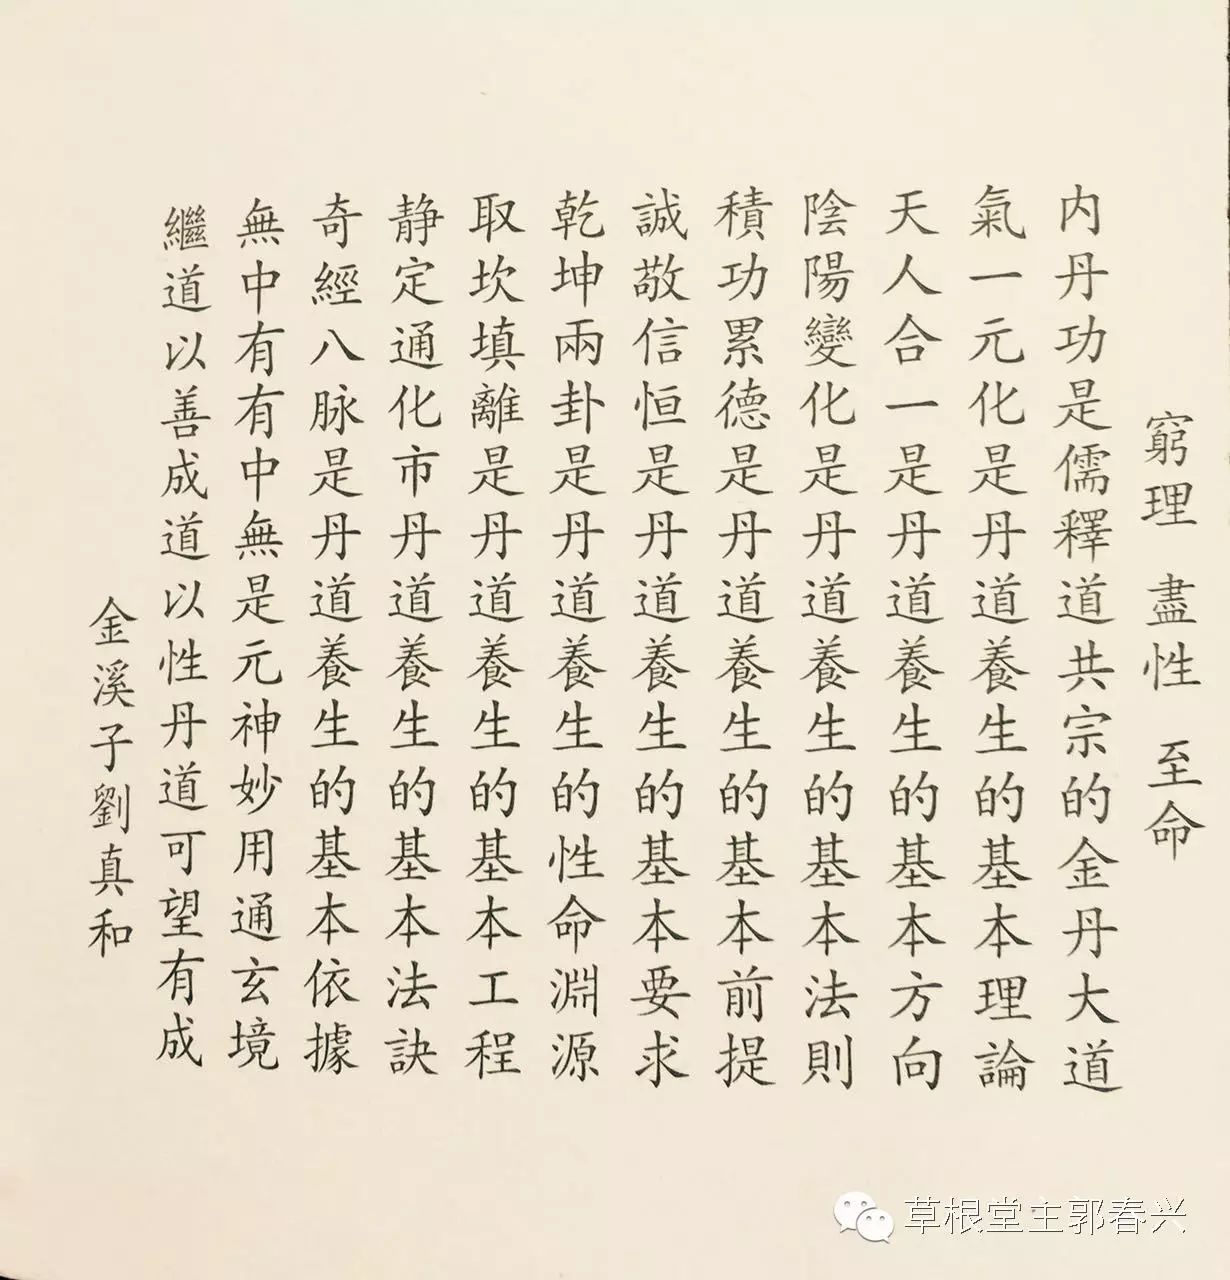 窮理 盡性 至命
内丹功是儒釋道共宗的金丹大道
氣一元化是丹道養生的基本理論
天人合一是丹道養生的基本方向
陰陽變化是丹道養生的基本法則
積功累德是丹道養生的基本前提
誠敬信恒是丹道養生的基本要求
乾坤兩卦是丹道養生的性命淵源
取坎填離是丹道養生的基本工程
静定通化市丹道養生的基本法訣
奇經八脉是丹道養生的基本依據
無中有有中無是元神妙用通玄境
繼道以善成道以性丹道可望有成
金溪子劉真和
草根堂主郭春兴